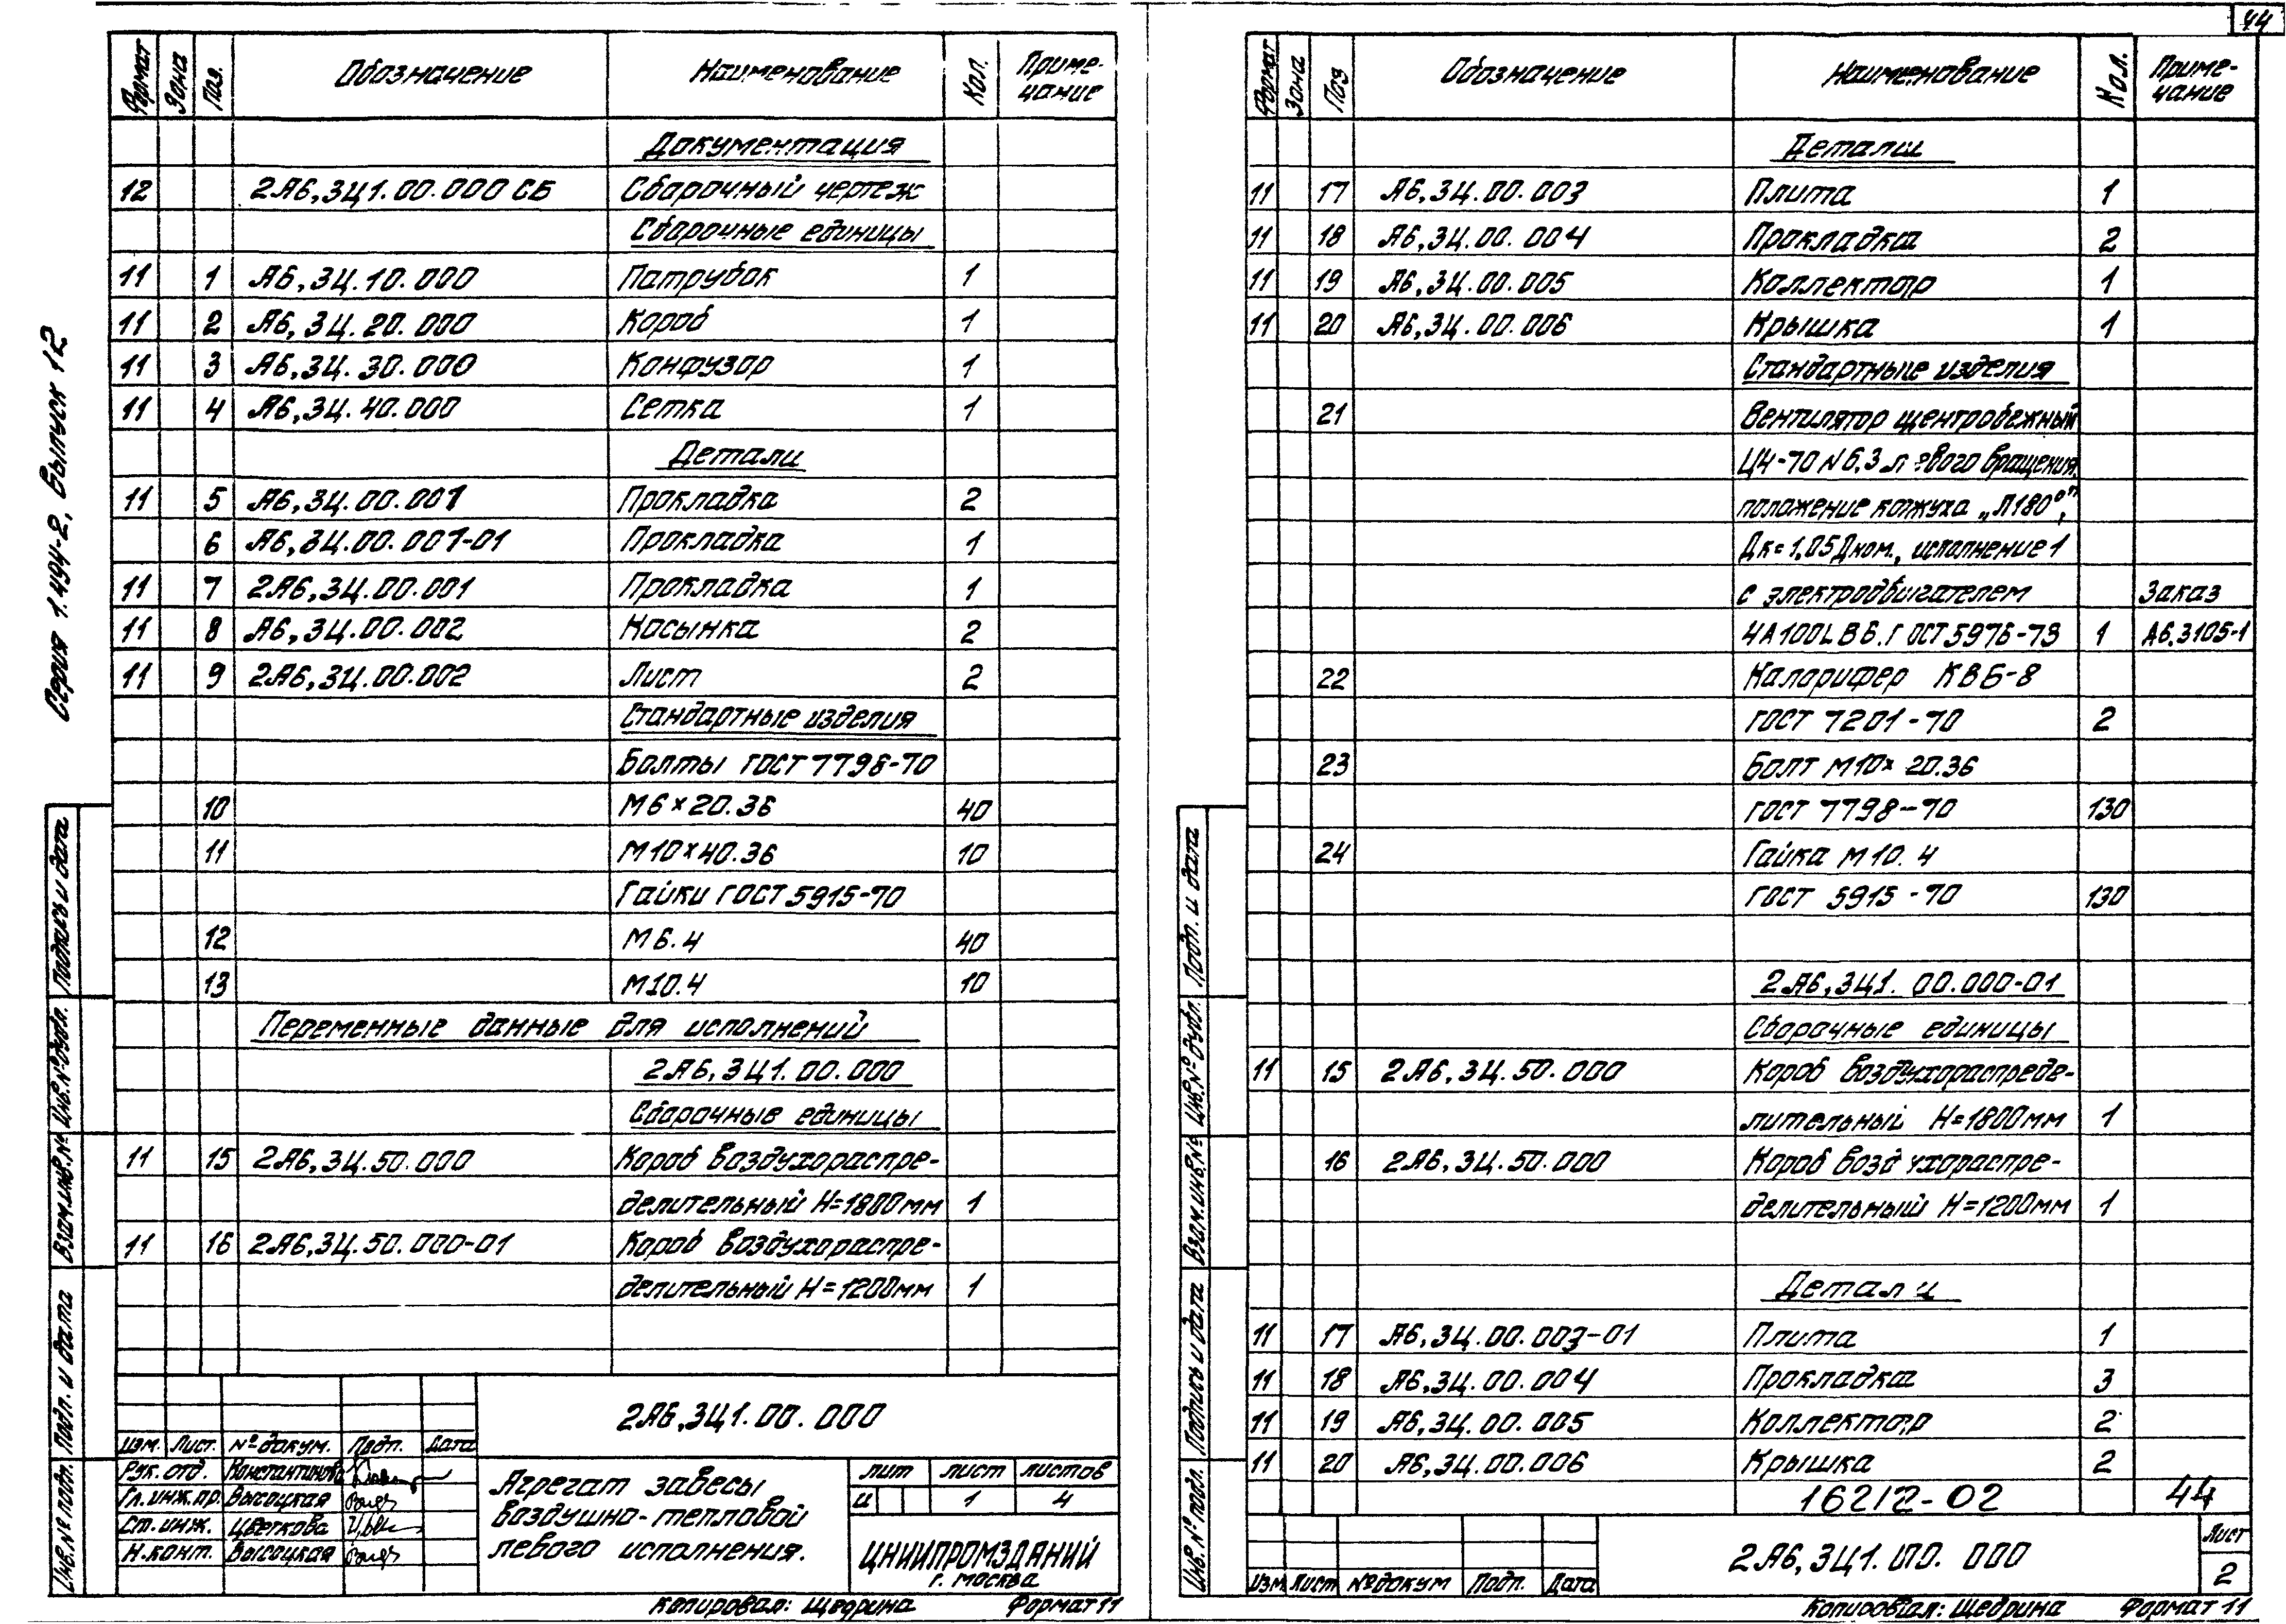 44
Серия 1.494-2, Выпуск 12
Формат Зона Поз. Обозначение Наименование Кол. Приме-
чание
Документация
12 2А6,3Ц1.00.000 СБ Сборочный чертеж
Сборочные единицы
11 1 А6,3Ц.10.000 Патрубок 1
11 2 А6,3Ц.20.000 Короб 1
11 3 А6,3Ц.30.000 Конфузор 1
11 4 А6,3Ц.40.000 Сетка 1
Детали
11 5 А6,3Ц.00.001 Прокладка 2
6 А6,3Ц.00.001-01 Прокладка 1
11 7 2А6,3Ц.00.001 Прокладка 1
11 8 А6,3Ц.00.002 Косынка 2
11 9 2А6,3Ц.00.002 Лист 2
Стандартные изделия
Болты ГОСТ 7798-70
10 М6×20.36 40
11 М10×40.36 10
Гайки ГОСТ 5915-70
12 М6.4 40
13 М10.4 10
Переменные данные для исполнений
2А6,3Ц1.00.000
Сборочные единицы
11 15 2А6,3Ц.50.000 Короб воздухораспре-
делительный H=1800мм 1
11 16 2А6,3Ц.50.000-01 Короб воздухораспре-
делительный H=1200мм 1
Подпись и дата
Инв.№ дубл.
Взам.инв.№
Подп. и дата
Инв.№ подл.
2А6,3Ц1.00.000
Изм. Лист. № докум. Подп. Дата
Рук. отд. Константинова
Гл.инж.пр. Высоцкая
Ст.инж. Цветкова
Н.конт. Высоцкая
Агрегат завесы
воздушно-тепловой
левого исполнения.
Лит Лист Листов
И 1 4
ЦНИИПРОМЗДАНИЙ
г. Москва
Копировал: Щедрина Формат 11
Формат Зона Поз Обозначение Наименование Кол. Приме-
чание
Детали
11 17 А6,3Ц.00.003 Плита 1
11 18 А6,3Ц.00.004 Прокладка 2
11 19 А6,3Ц.00.005 Коллектор 1
11 20 А6,3Ц.00.006 Крышка 1
Стандартные изделия
21 Вентилятор центробежный
Ц4-70 №6,3 левого вращения,
положение кожуха „Л180°",
Дк=1,05Дном., исполнение 1
с электродвигателем Заказ
4А100LВ6.ГОСТ 5976-73 1 А6,3105-1
22 Калорифер КВБ-8
ГОСТ 7201-70 2
23 Болт М10×20.36
ГОСТ 7798-70 130
24 Гайка М10.4
ГОСТ 5915-70 130
2А6,3Ц1.00.000-01
Сборочные единицы
11 15 2А6,3Ц.50.000 Короб воздухораспреде-
лительный H=1800мм 1
16 2А6,3Ц.50.000 Короб воздухораспре-
делительный H=1200мм 1
Детали
11 17 А6,3Ц.00.003-01 Плита 1
11 18 А6,3Ц.00.004 Прокладка 3
11 19 А6,3Ц.00.005 Коллектор 2
11 20 А6,3Ц.00.006 Крышка 2
16212-02 44
Подп. и дата
Инв.№ дубл.
Взам.инв.№
Подпись и дата
Инв.№ подл.
2А6,3Ц1.00.000
Лист
2
Изм Лист № докум Подп. Дата
Копировал: Щедрина Формат 11